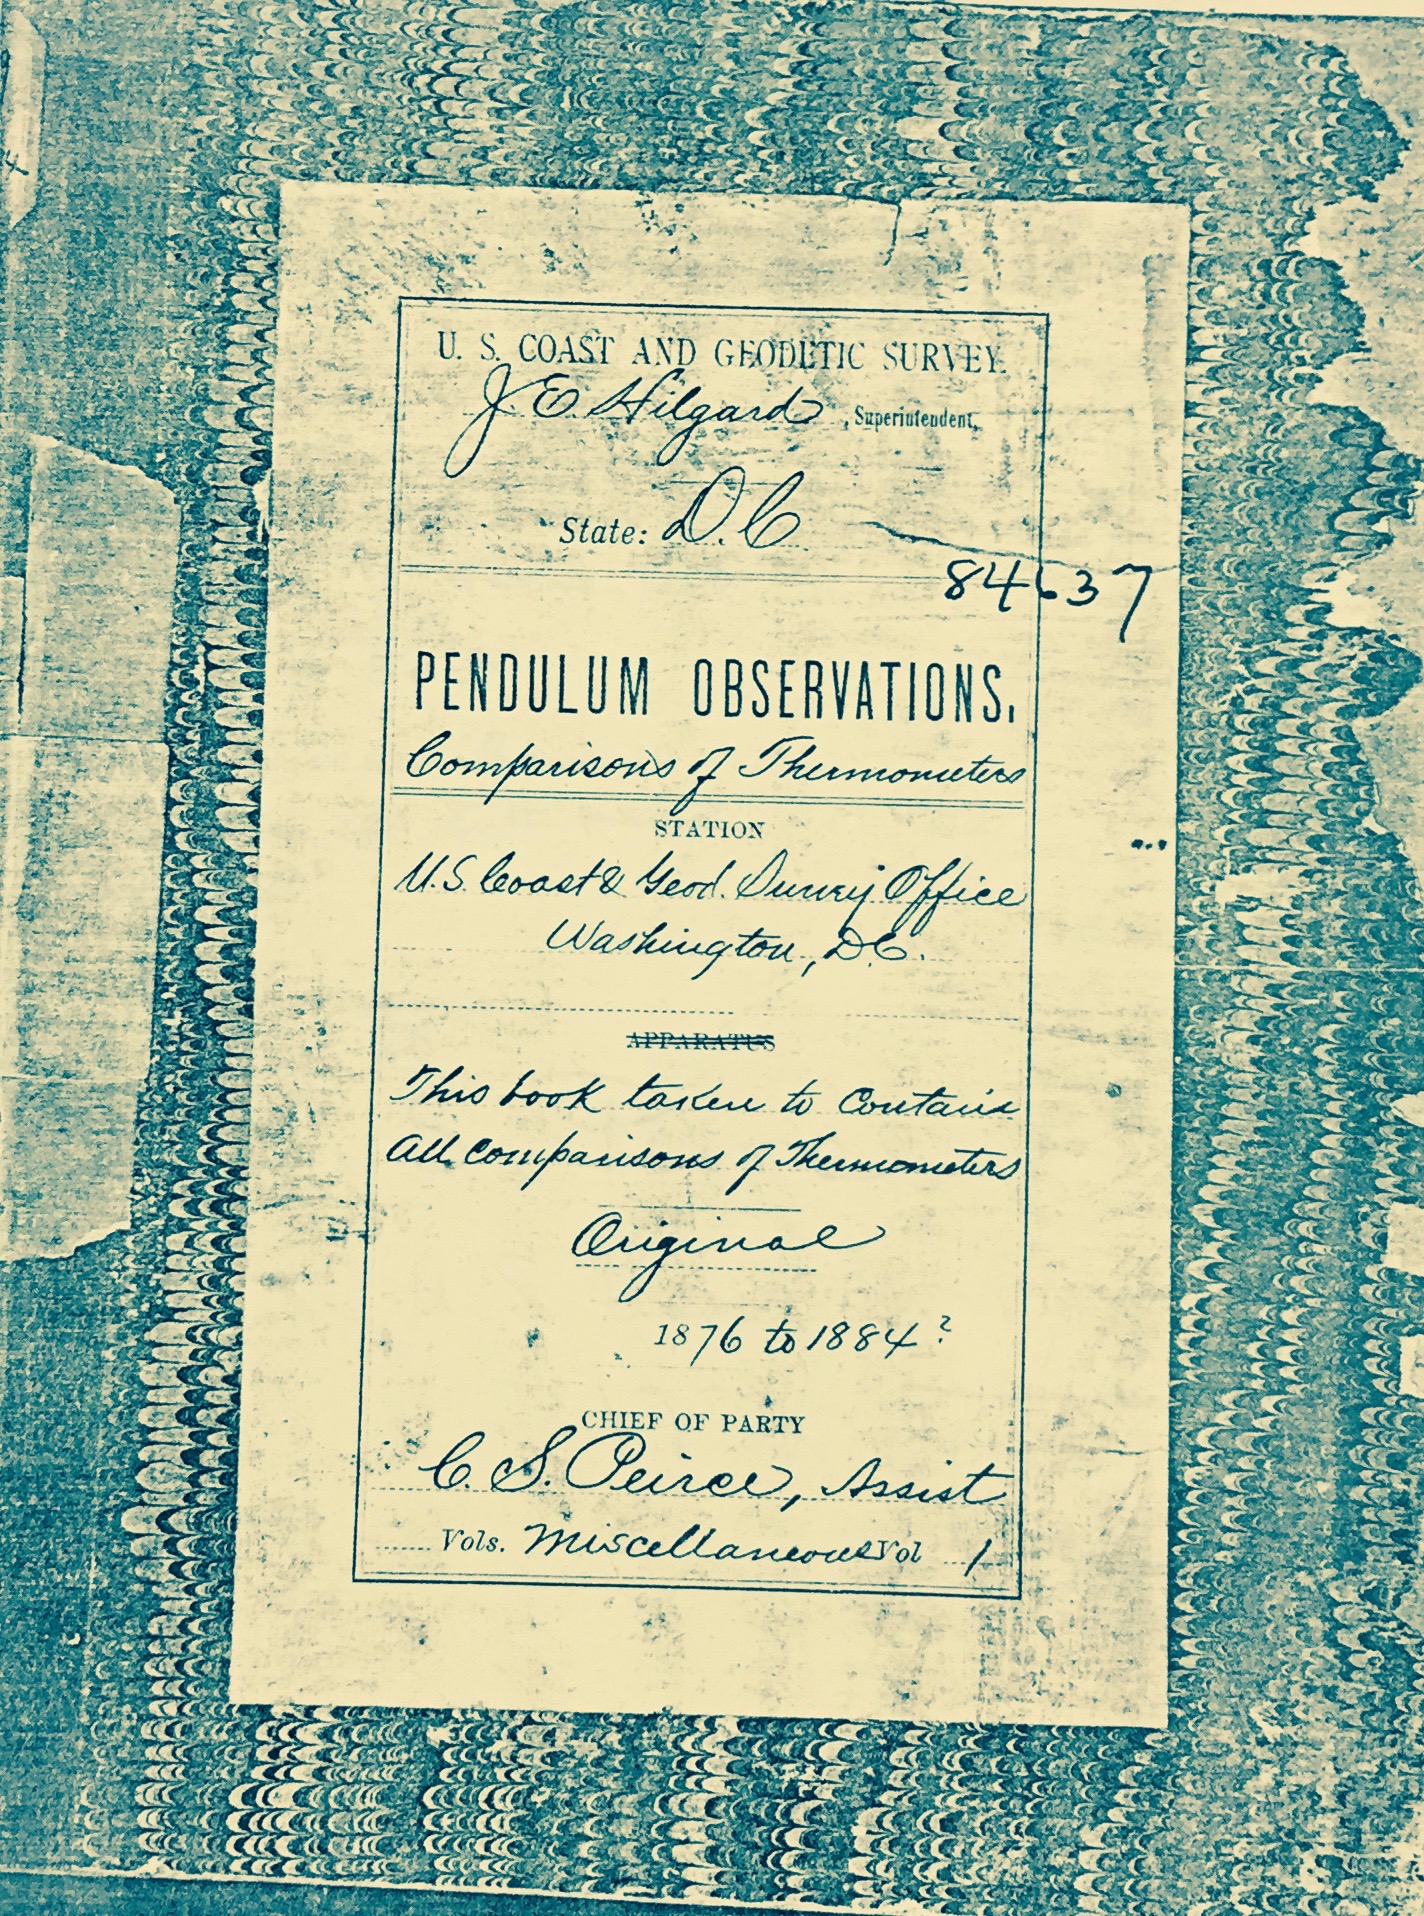 U. S. COAST AND GEODETIC SURVEY.
J E Hilgard, Superintendent,
State: D.C
84637
PENDULUM OBSERVATIONS.
Comparisons of Thermometers
STATION
U.S. Coast & Geod. Survey Office
Washington, D.C.
APPARATUS
This book taken to Contain
All Comparisons of Thermometers
Original
1876 to 1884?
CHIEF OF PARTY
C. S. Peirce, Assist
Vols. Miscellaneous Vol 1